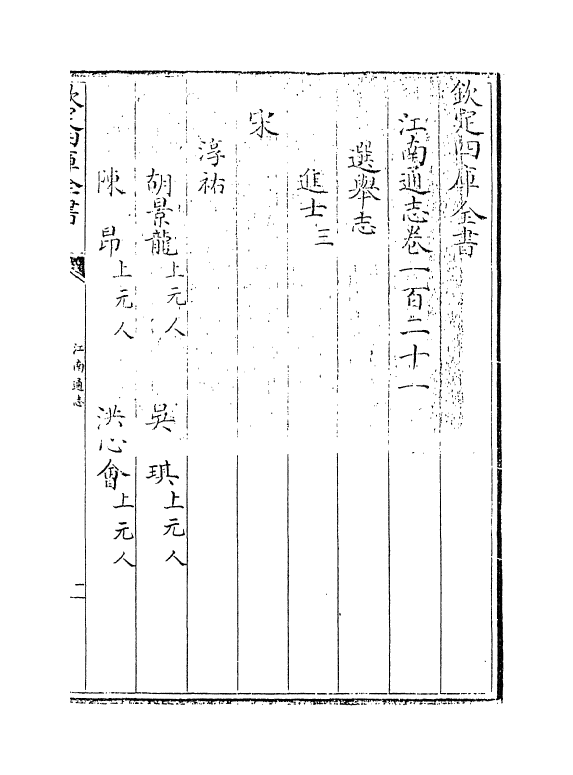 欽定四庫全書
江南通志卷一百二十一
選舉志
進士三
宋
淳祐
胡景龍上元人 吳琪上元人
陳昂上元人 洪心會上元人
欽定四庫全書 江南通志 二